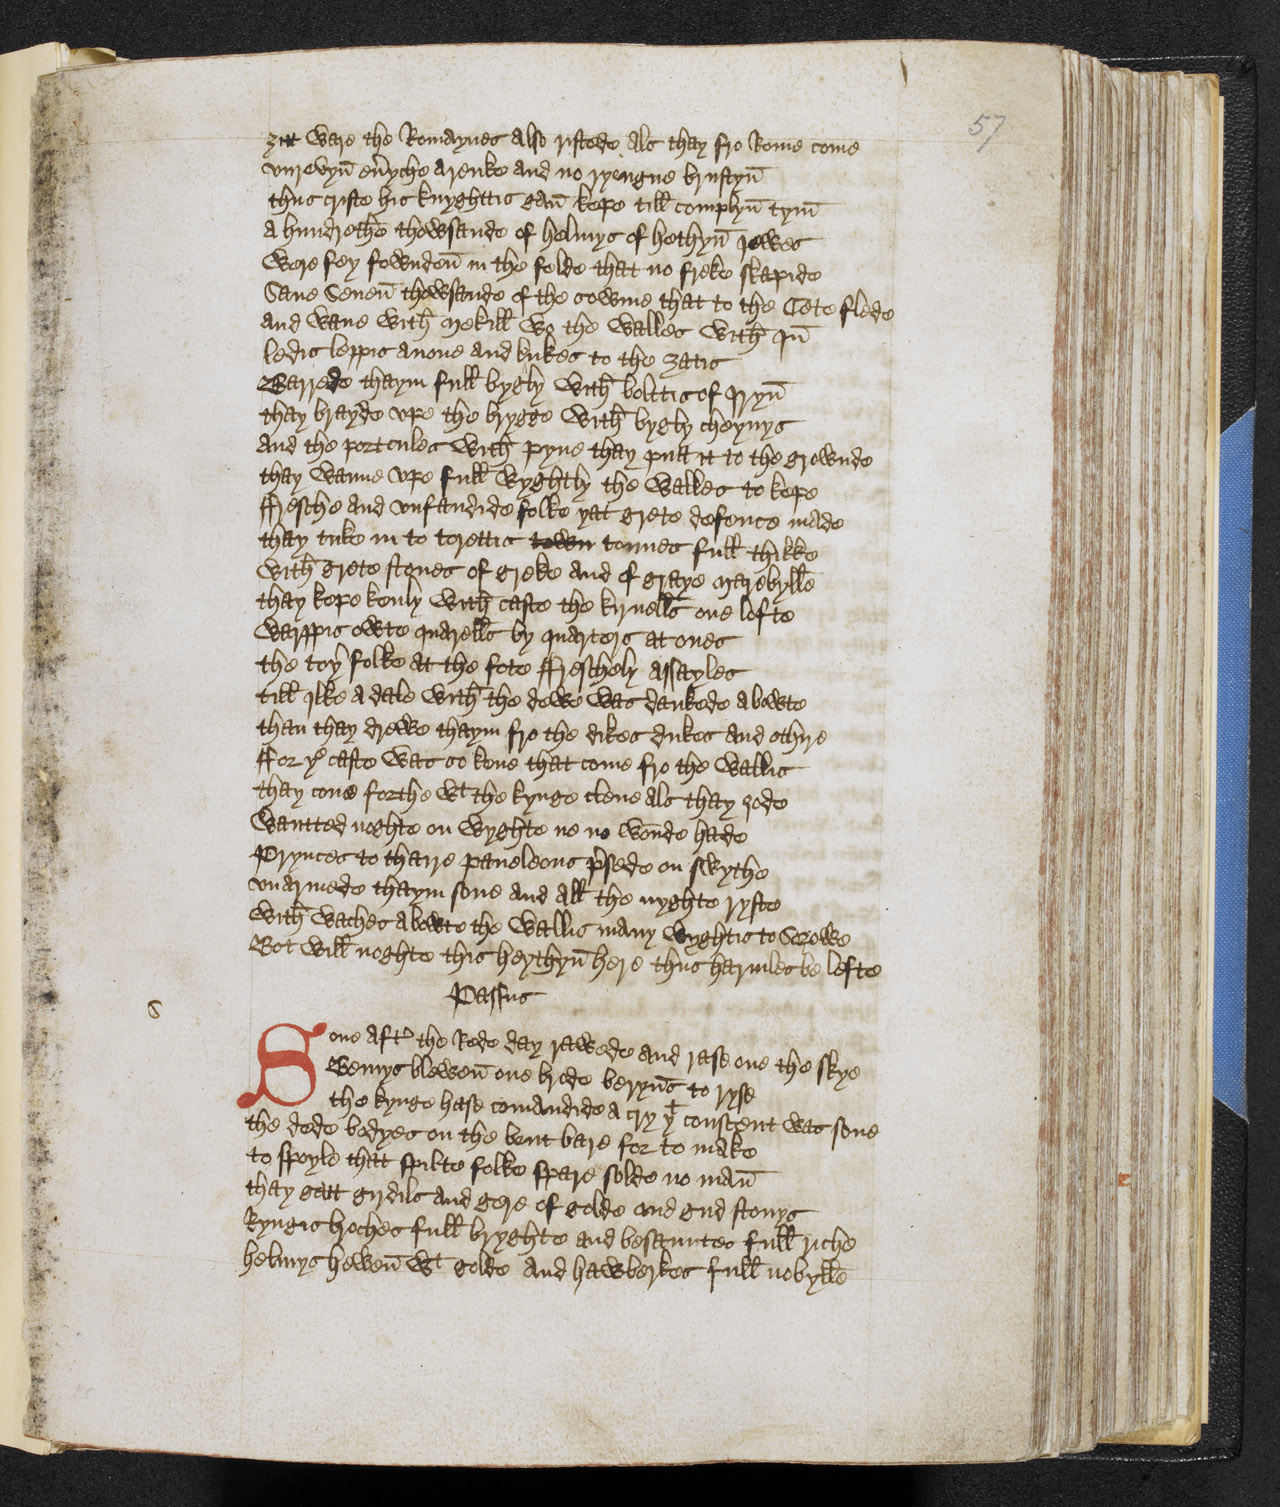 57
ȝitt ware the Romaynes also ristede als thay fro Rome come
vnrevyn̄ eūyche a renke and no ryengne brustyn̄
thus criste his knyghttis gan̄ kepe till complyn̄ tym̄
a hundrethe thowsande of helmys of hethyn̄ Jewes
Were fey fownden̄ in the felde that no freke skapide
Saue Seuen̄ thowsande of the sowme that to the Cete flede
and wane with mekill wo the walles with jn̄
ledis leppis anone and lukes to the ȝatis
Barrede thaym full bygly with bolttis of Jryn̄
thay brayde vpe the brygge with bygly cheynys
and the portcules with pyne thay putt it to the grownde
thay wanne vpe full wyghtly the walles to kepe
ffresche and vnfandide folke yat grete defence made
thay tuke in to torettis tonnes full thikke
with grete stones of greke and of graye marebylle
thay kepe kenly with caste the kirnells one lofte
warppis owte quarells by quarters at ones
the toþ folke at the fote ffreschely assayles
till jlke a dale with the dewe was dankede abowte
than thay drewe thaym fro the dikes dukes and othire
ffor yͤ caste was so kene that come fro the wallis
thay come forthe wͭ the kynge clene als thay ȝode
wantted noghte on wyghte ne no wonde hade
Prynces to thaire paueleons p̄sede on swythe
vnarmede thaym sone and all the nyghte ryste
with waches abowte the wallis many wyghtis to Sorowe
Bot will noghte this heythyn̄ here thus harmles be lefte
Passus
Sone aftꝰ the Rede day rawede and rase one the skye
Bemys blewen̄ one brode beryn̄s to ryse
the kynge hase comandide a cry yͭ consent was sone
the dede bodyes on the bent bare for to make
to spoyle that spilte folke spare solde no man̄
thay gatt girdils and gere of golde and gud stonys
Ryngis broches full bryghte and besauntes full riche
helmys hewen̄ wͭ golde and hawberkes full nobylle